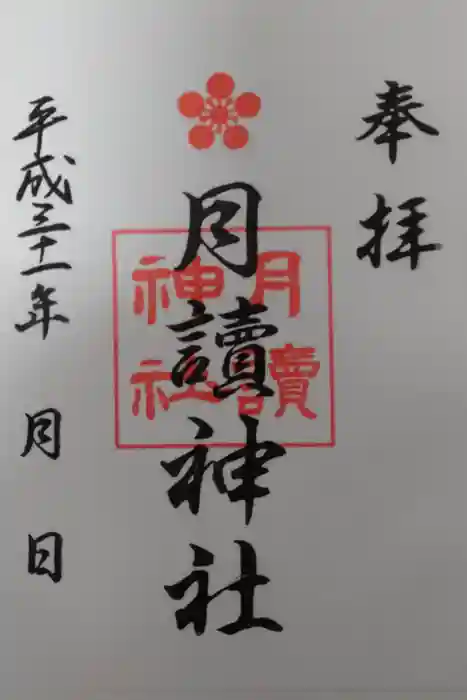 奉拝
月讀神社
月讀
神社
平成三十一年　月　日